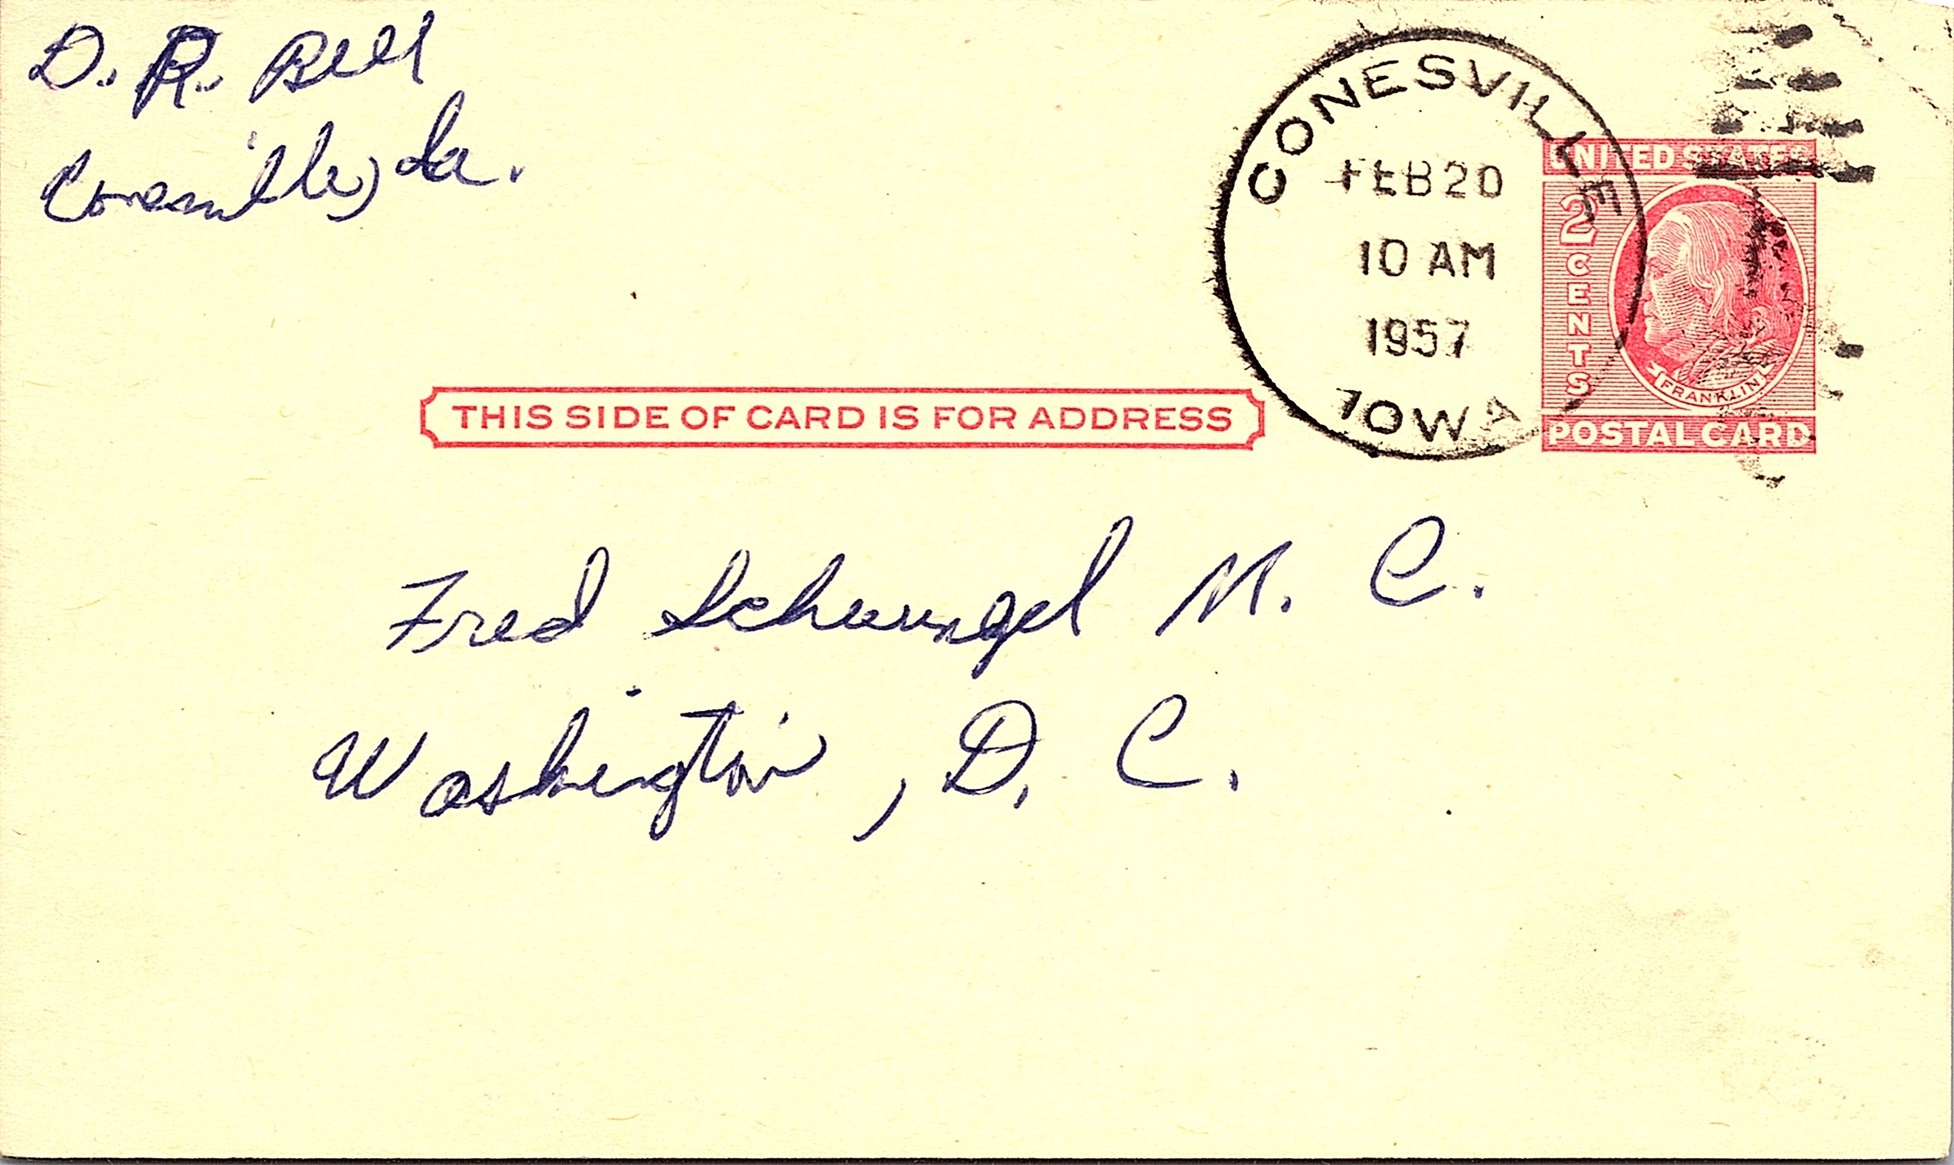 D. R. Bell
Conesville, Ia.
CONESVILLE
FEB 20
10 AM
1957
IOWA
UNITED STATES
2 CENTS
FRANKLIN
POSTAL CARD
THIS SIDE OF CARD IS FOR ADDRESS
Fred Schwengel M. C.
Washington, D. C.